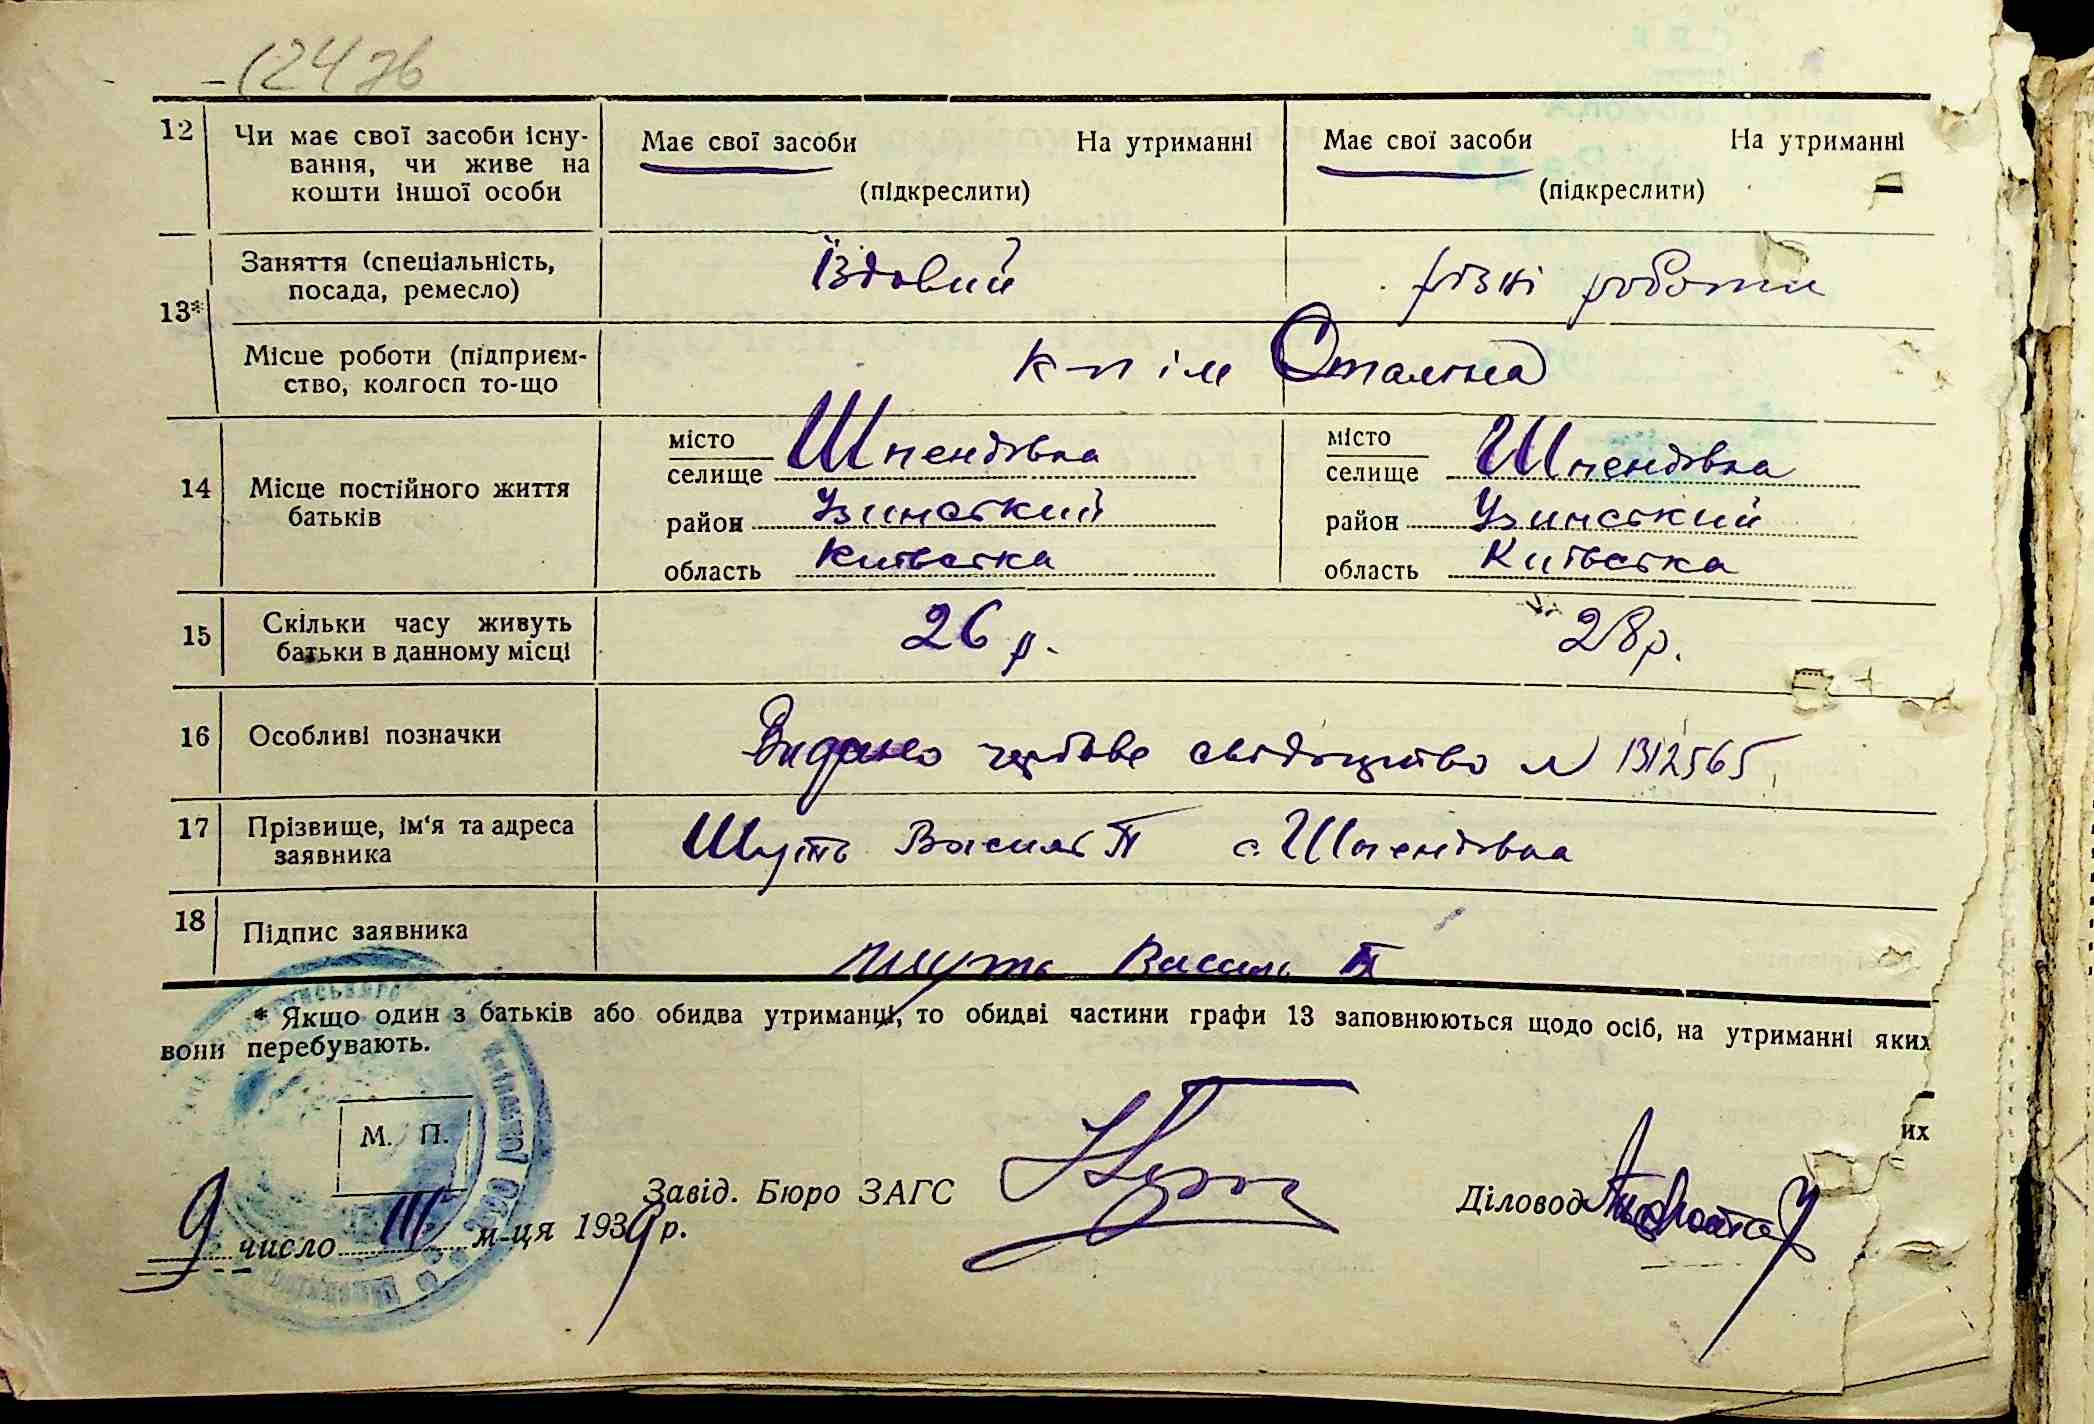 12476
12 Чи має свої засоби існу-
вання, чи живе на
кошти іншої особи
Має свої засоби На утриманні
(підкреслити)
Має свої засоби На утриманні
(підкреслити)
13* Заняття (спеціальність,
посада, ремесло)
Їздовий
різні роботи
Місце роботи (підприєм-
ство, колгосп то-що
к-п ім Сталіна
14 Місце постійного життя
батьків
місто
селище Шпендівка
район Узинський
область Київська
місто
селище Шпендівка
район Узинський
область Київська
15 Скільки часу живуть
батьки в данному місці
26 р.
28 р.
16 Особливі позначки
Видано свідоцтво N 1312565
17 Прізвище, ім'я та адреса
заявника
Шуть Василь П с. Шпендівка
18 Підпис заявника
Шуть Василь П
* Якщо один з батьків або обидва утриманці, то обидві частини графи 13 заповнюються щодо осіб, на утриманні яких
вони перебувають.
их
М. П.
Завід. Бюро ЗАГС
Діловод
9 число III м-ця 1939 р.
Київської Обл.